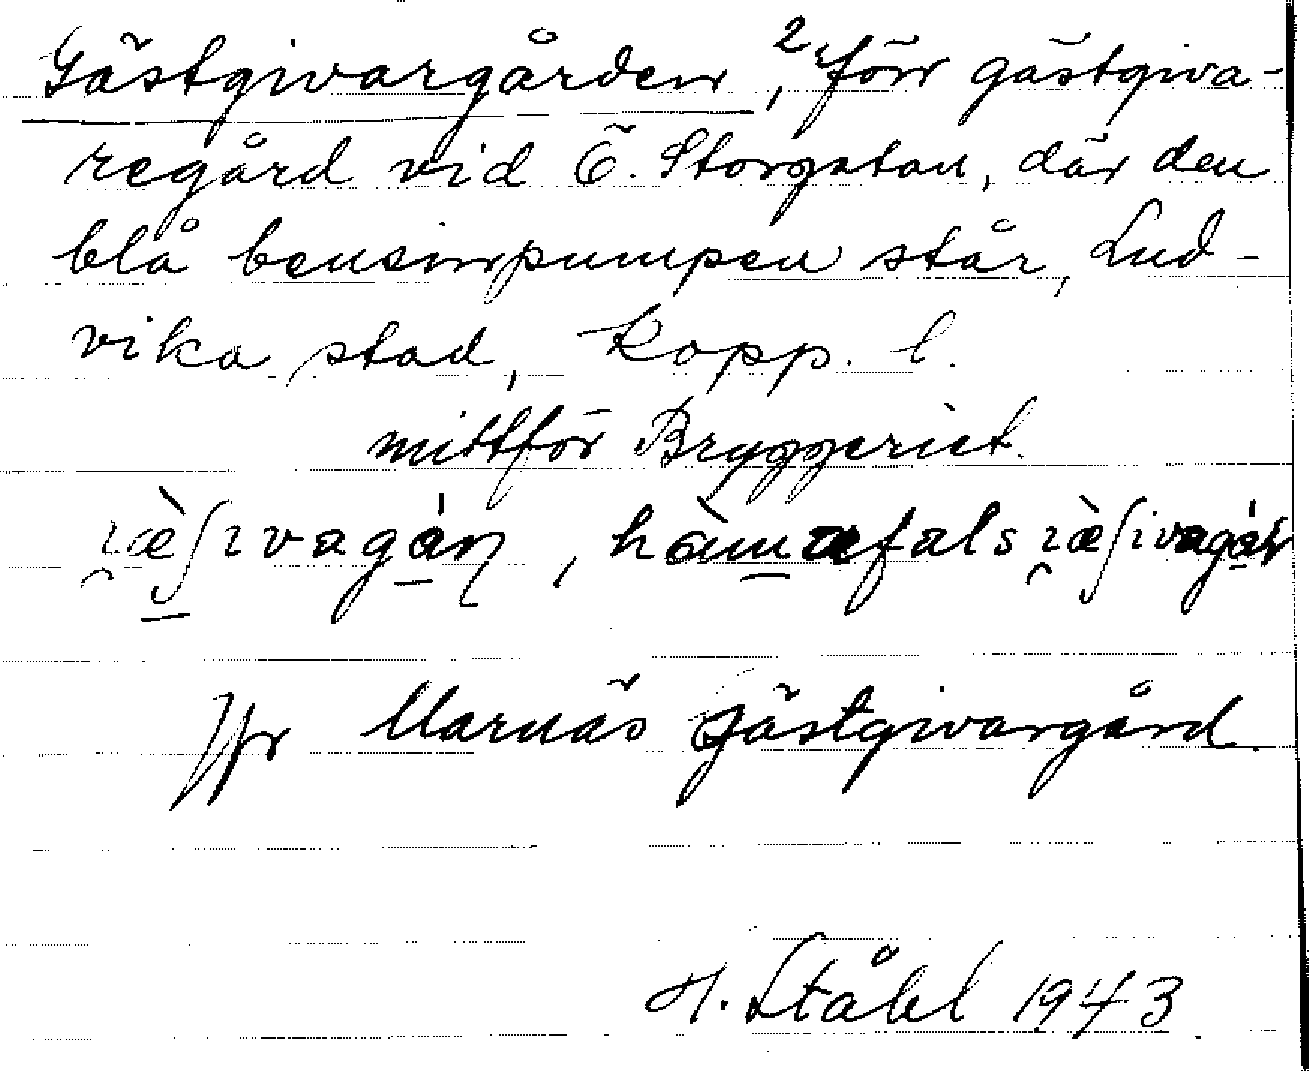 Gästgivargården, 2, förr gästgiva-
regård vid Ö. Storgatan, där den
blå bensinpumpen står, Lud-
vika stad, Kopp. l.
mittför Bryggeriet.
Jfr Marnäs Gästgivargård.
H. Ståhl 1943